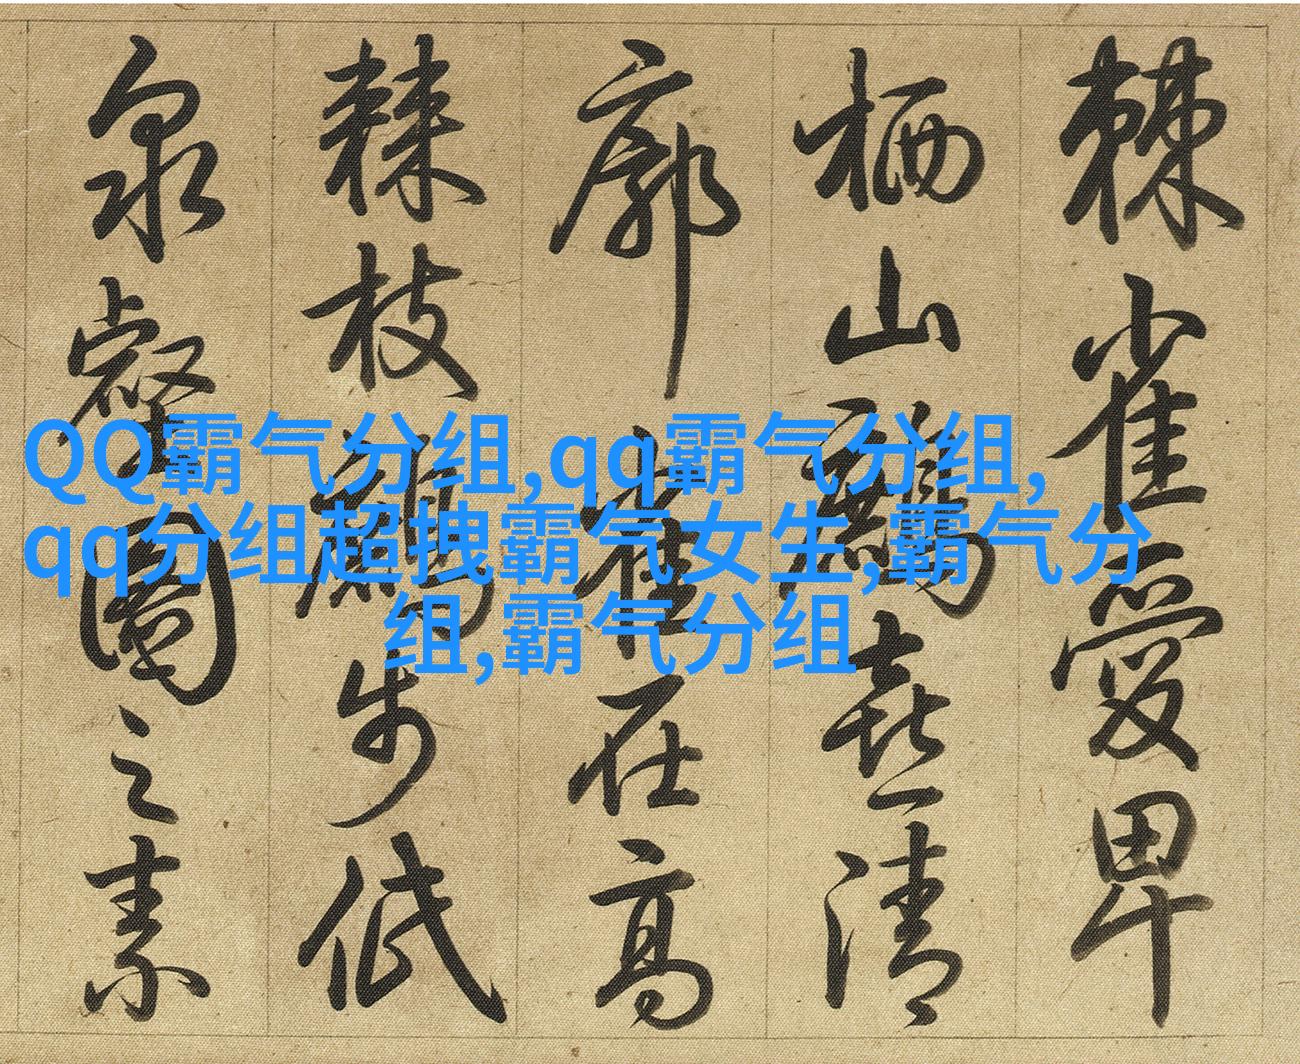 棘雀愛卑
栖山鷓喜清
廓雀在高
棘枝鷓步低
泉壑圖之素
QQ霸气分组,qq霸气分组,
qq分组超拽霸气女生,霸气分
组,霸气分组